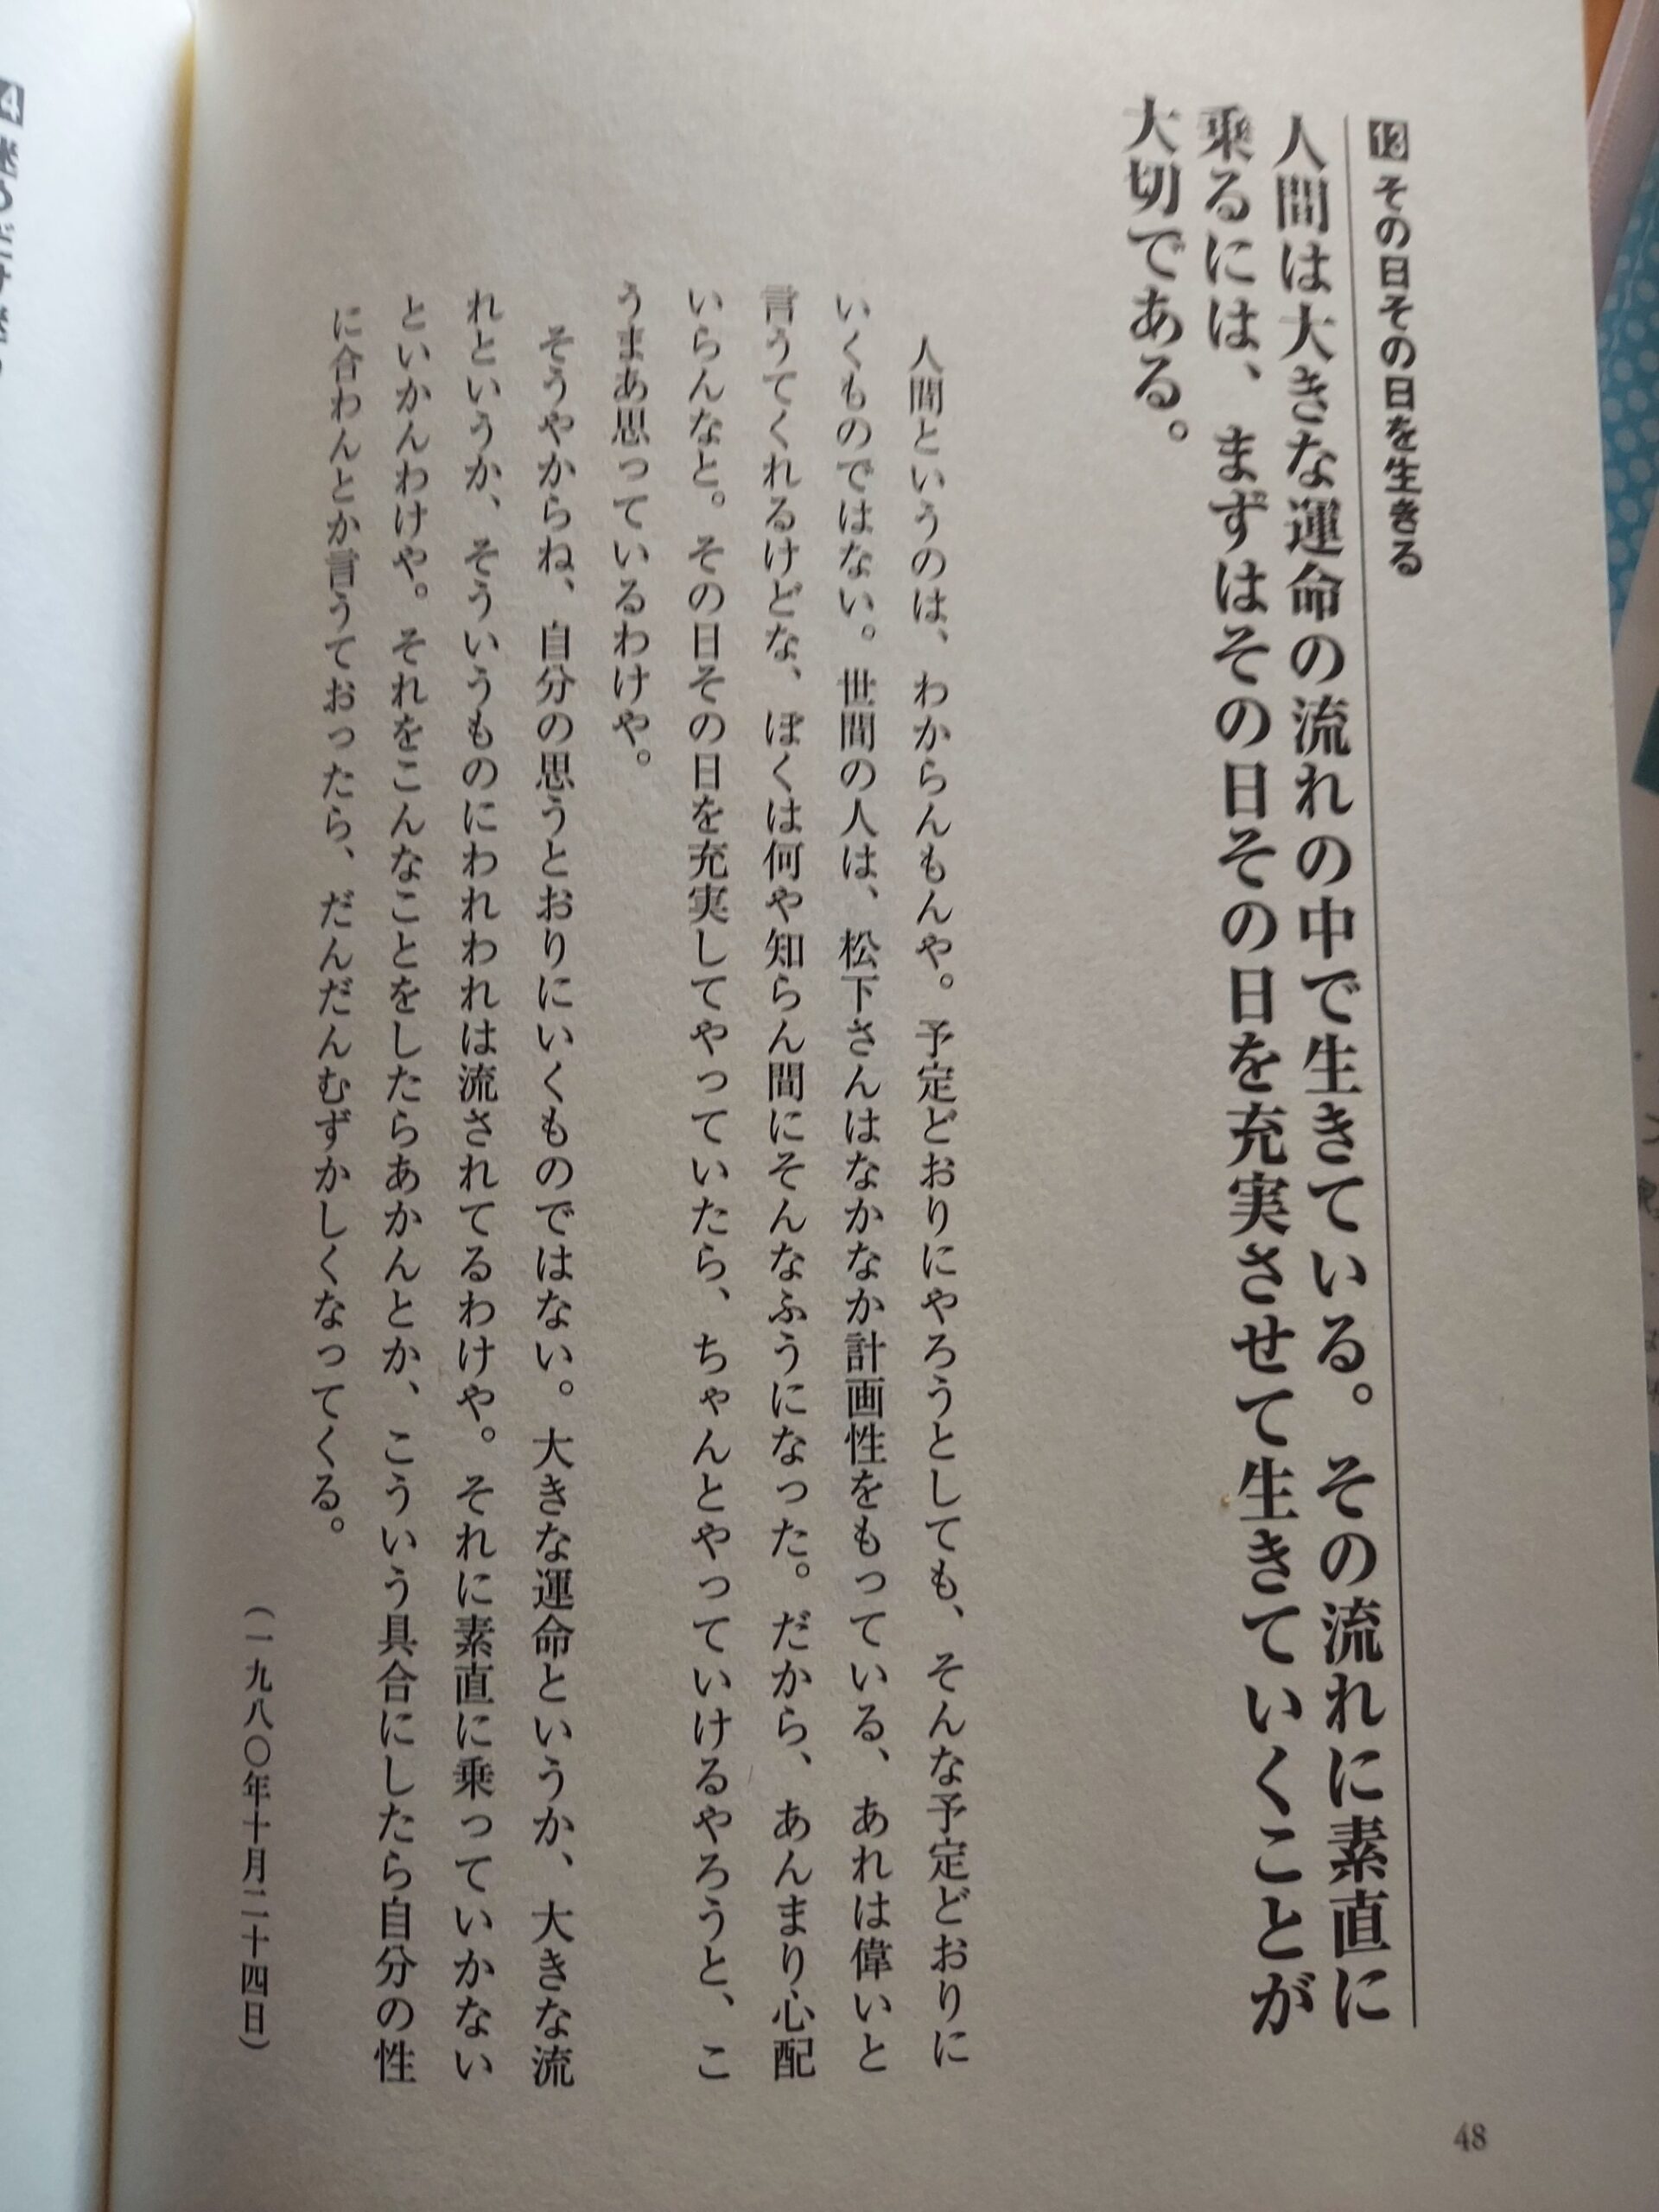 13 その日その日を生きる
人間は大きな運命の流れの中で生きている。その流れに素直に
乗るには、まずはその日その日を充実させて生きていくことが
大切である。
人間というのは、わからんもんや。予定どおりにやろうとしても、そんな予定どおりに
いくものではない。世間の人は、松下さんはなかなか計画性をもっている、あれは偉いと
言うてくれるけどな、ぼくは何や知らん間にそんなふうになった。だから、あんまり心配
いらんなと。その日その日を充実してやっていたら、ちゃんとやっていけるやろうと、こ
うまあ思っているわけや。
そうやからね、自分の思うとおりにいくものではない。大きな運命というか、大きな流
れというか、そういうものにわれわれは流されてるわけや。それに素直に乗っていかない
といかんわけや。それをこんなことをしたらあかんとか、こういう具合にしたら自分の性
に合わんとか言うておったら、だんだんむずかしくなってくる。
（一九八〇年十月二十四日）
48